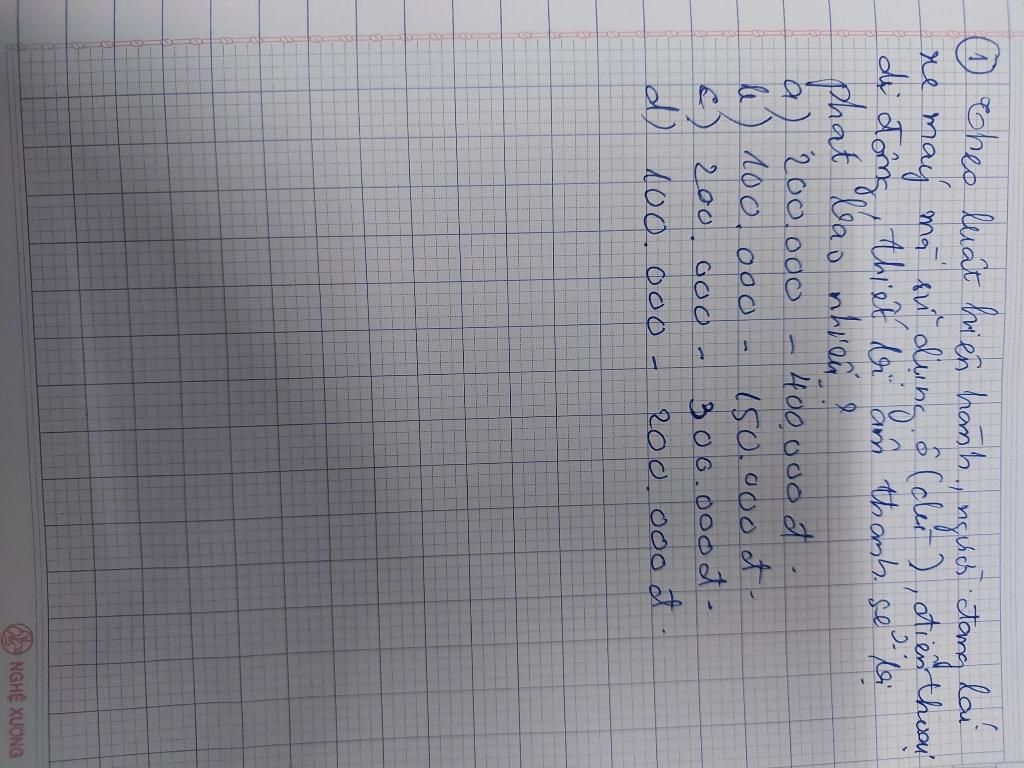 ① Theo luật hiện hành, người đang lái
xe máy mà sử dụng ô (dù), điện thoại
di động, thiết bị âm thanh sẽ bị
phạt bao nhiêu?
a) 200.000 - 400.000đ.
b) 100.000 - 150.000đ.
c) 200.000 - 300.000đ.
d) 100.000 - 200.000đ.
NGHỆ XƯƠNG